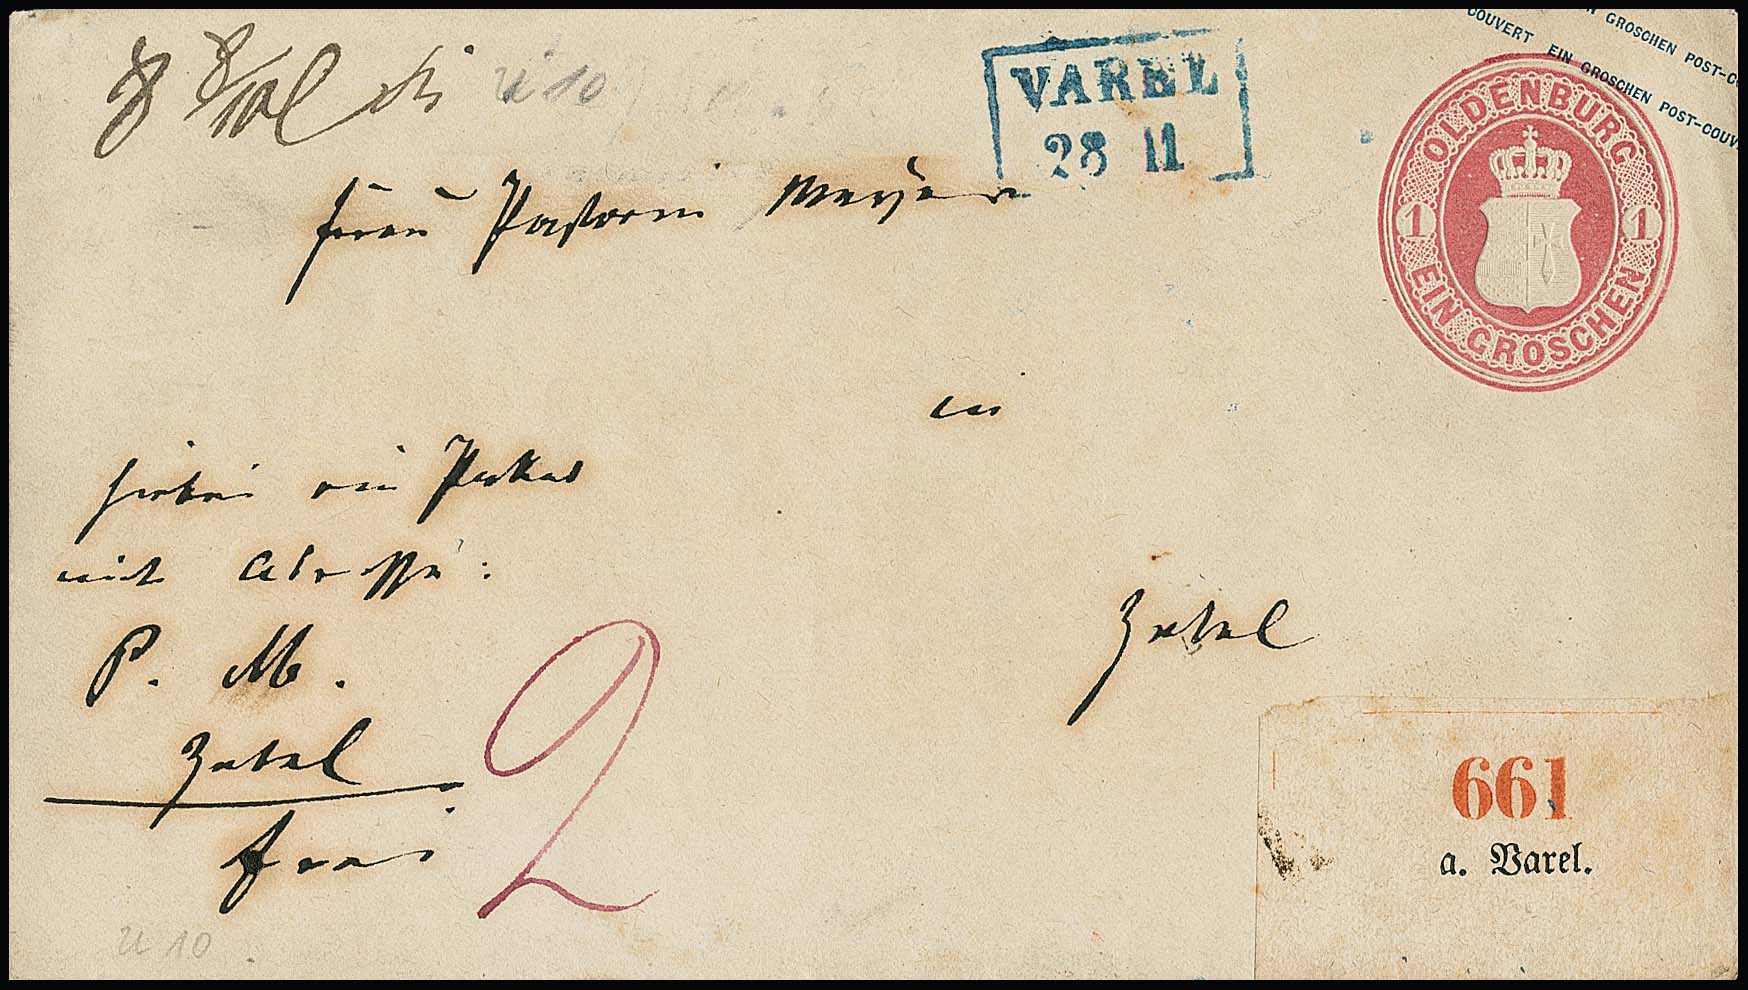 GROSCHEN POST-C
COUVERT EIN GROSCHEN POST-COUV
VAREL
28 11
OLDENBURG
1 1
EIN GROSCHEN
U 10
Frau Pastorin Meyer
in
Zetel
hierbei ein Packet
mit Adresse:
P. M.
Zetel
frei
2
661
a. Varel.
U 10